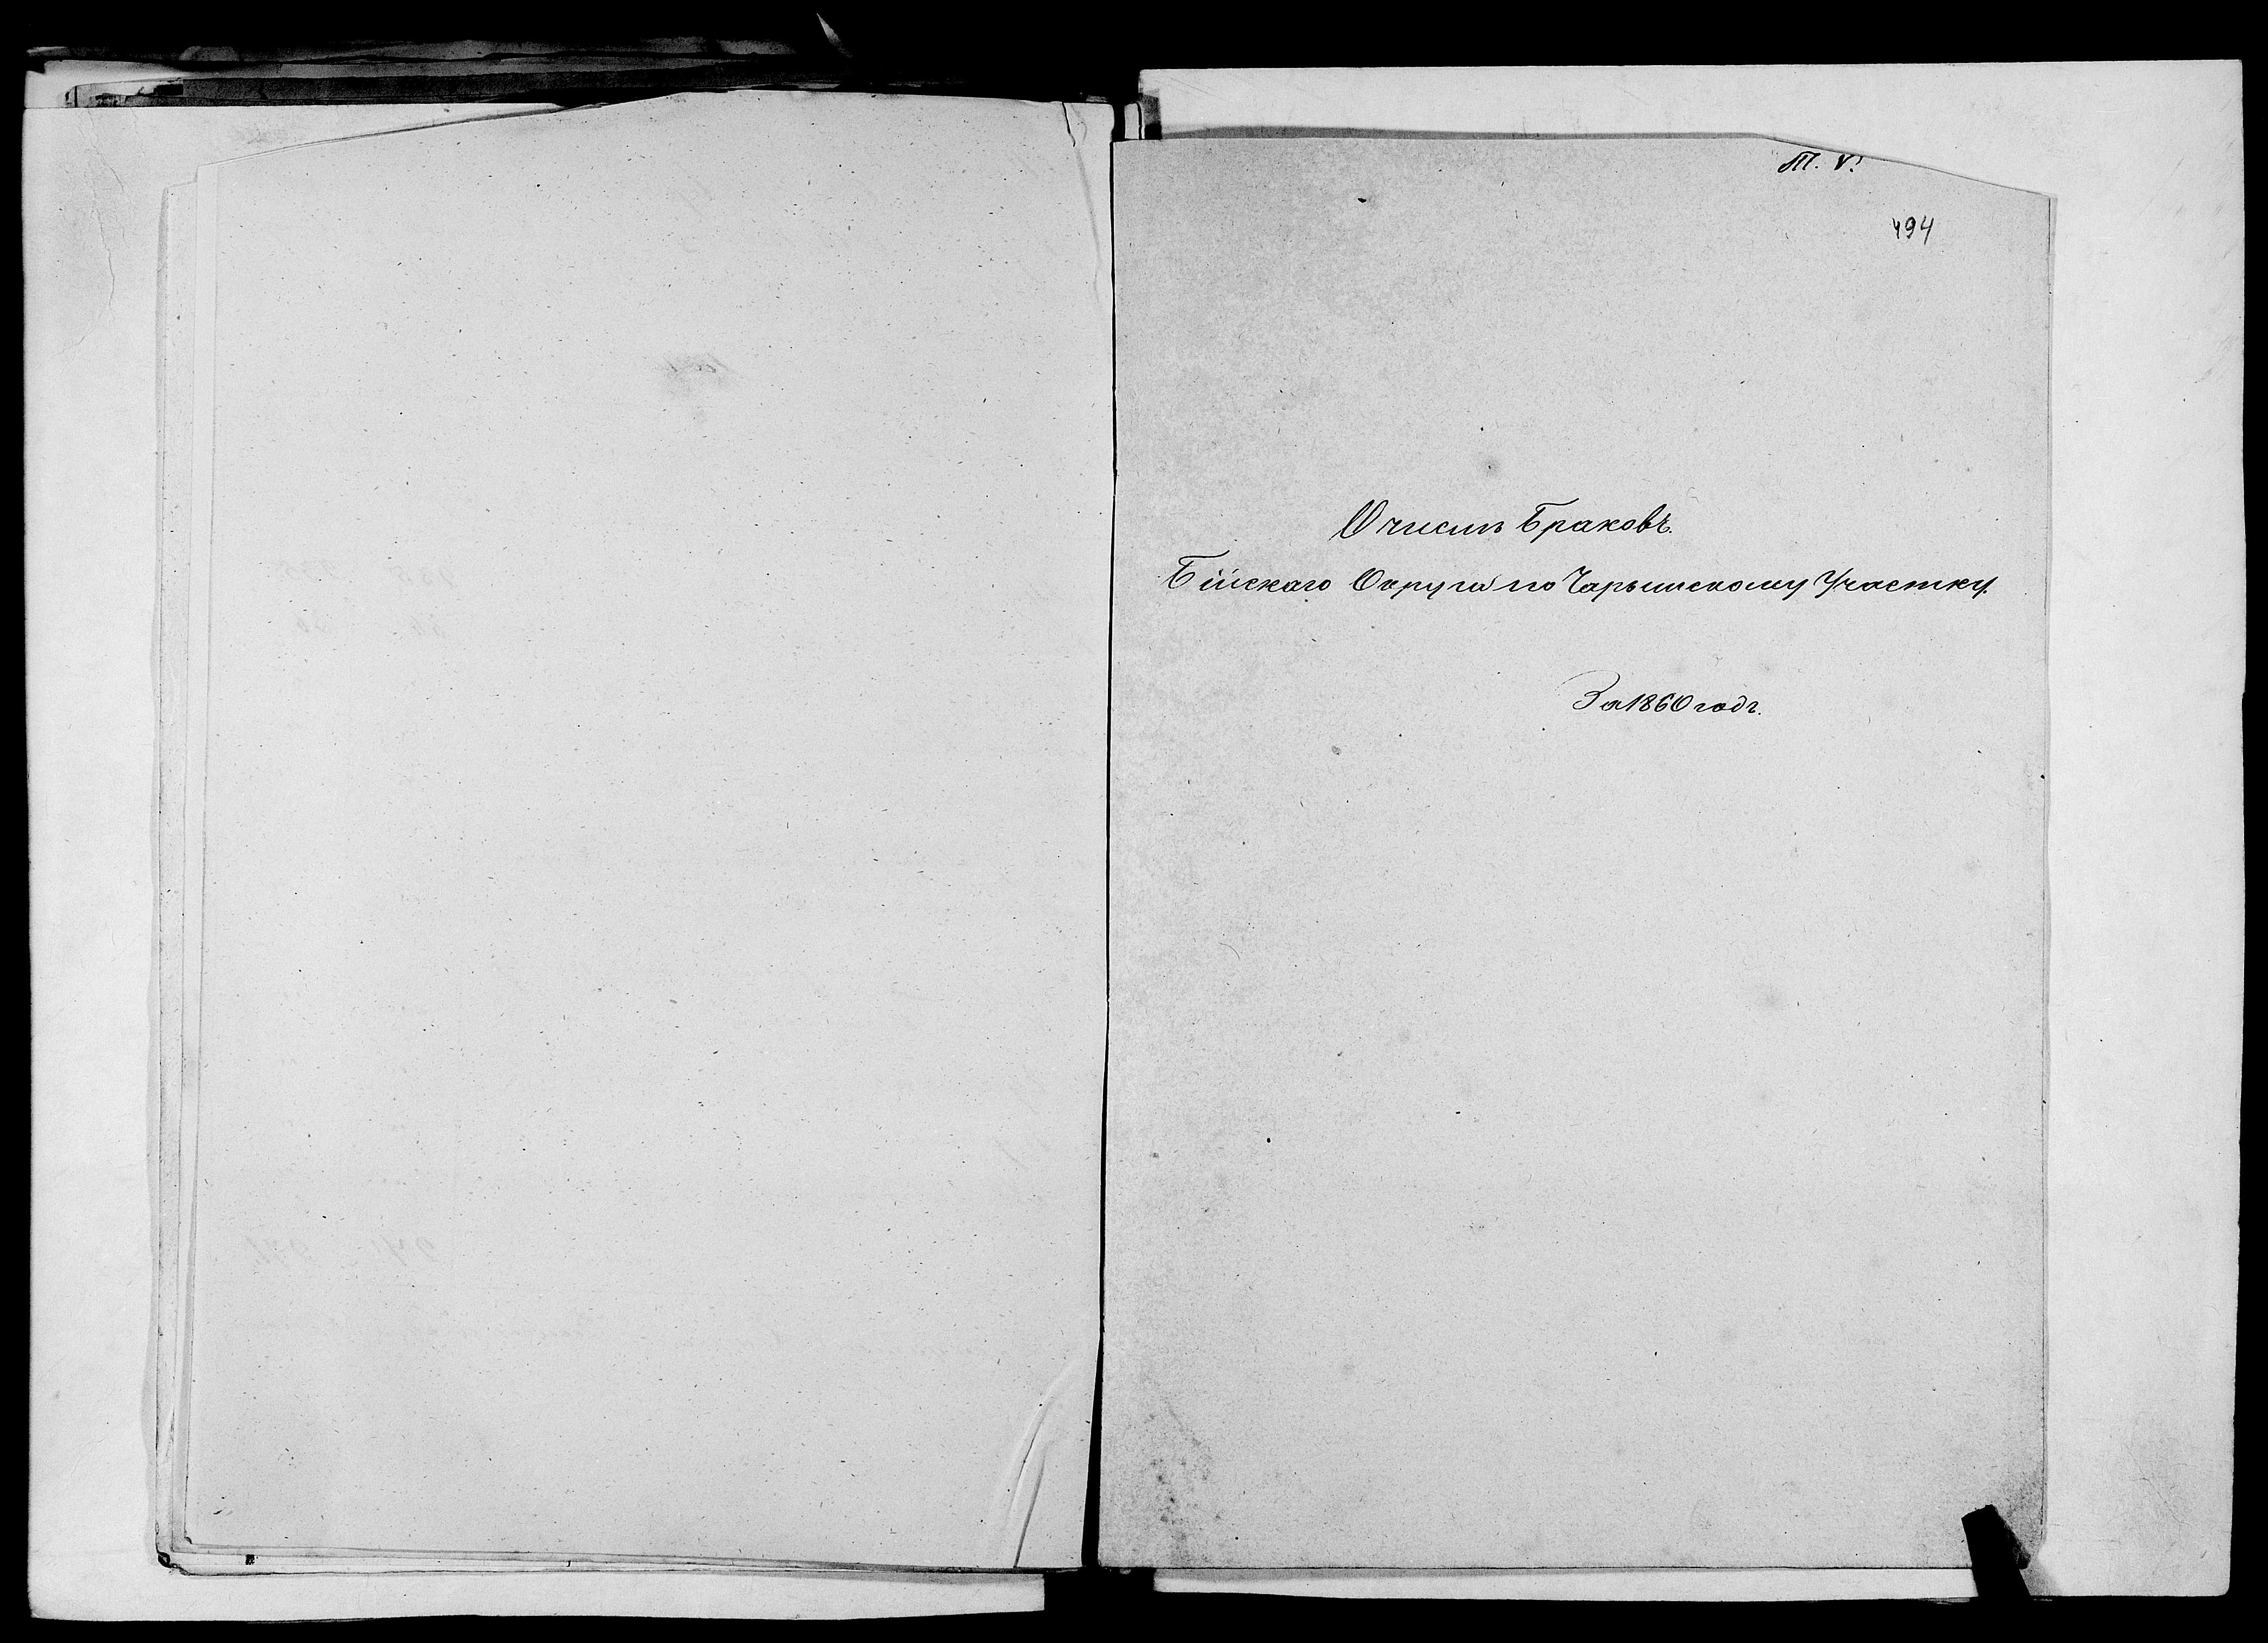 Т. V.
494
О числѣ Браковъ.
Бійскаго Округа по Чарышскому Участку.
За 1860 годъ.